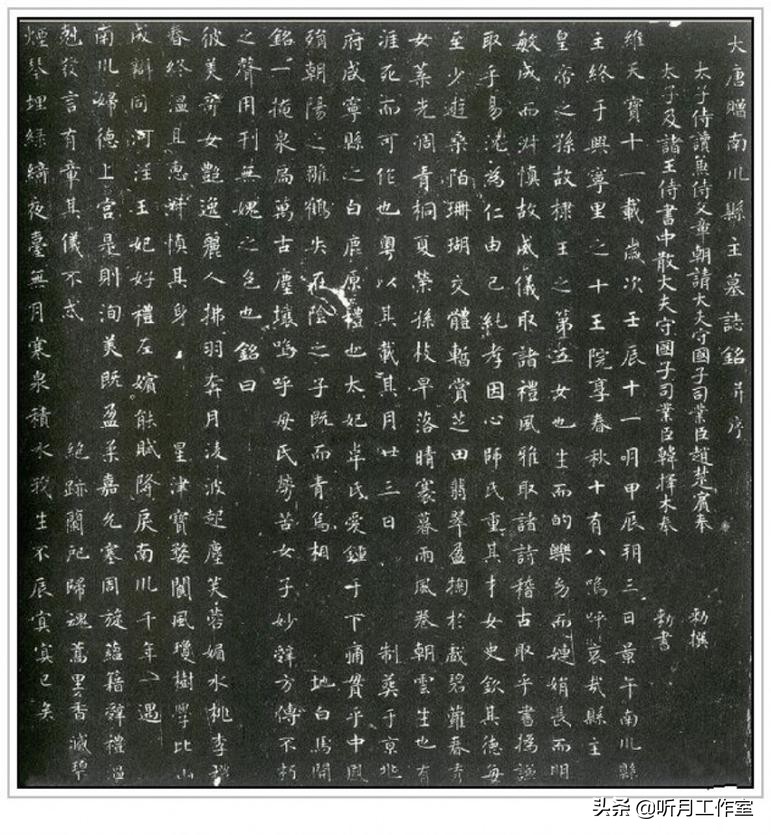 大唐贈南川縣主墓誌銘并序
太子侍讀兼侍文章朝請大夫守國子司業臣趙楚賓奉 勅撰
太子及諸王侍書中散大夫守國子司業臣韓擇木奉 勅書
維天寶十一載歲次壬辰十一月甲辰朔三日景午南川縣
主終于興寧里之十王院享春秋十有八嗚呼哀哉縣主
皇帝之孫故棣王之第五女也生而的皪幼而婕娟長而明
敏成而淑慎故威儀取諸禮風雅取諸詩稽古取乎書撝謙
取乎易為仁由己純孝因心師氏重其才女史欽其德每
至少遊桑陌珊瑚交體暫賞芝田翡翠盈掬於戲碧蘿春
女光凋青桐夏榮孫枝早落晴褰暮雨風卷朝雲生也有
涯死而可作也粵以其載其月廿三日 制葬于京兆
府咸寧縣之白鹿原禮也太妃韋氏愛鍾于下痛貫乎中鳳
殞朝陽之雛鶴失在陰之子既而青烏相 地白馬開
銘一掩泉扃萬古塵壤嗚呼母氏勞苦女子妙辭方傳不朽
之聲用刊無愧之色也銘曰
彼美齊女艷逸麗人拂羽奔月淩波起塵芙蓉媚水桃李增
春終溫且惠淑慎其身 星津寶婺閬風瓊樹學比山
成辯同河注王妃好禮左嬪能賦降戾南川千年一遇
南川婦德上宮是則洵美既盈柔嘉允塞周旋蘊藉辭禮溫
剋發言有章其儀不忒 絕跡蘭歸魂蒿里香滅碧
煙琴埋綠綺夜臺無月寒泉積水我生不辰寘寘已矣
头条 @听月工作室